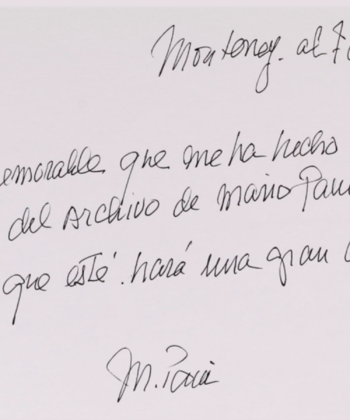 Monterrey. al
emorable que me ha hecho
del Archivo de Mario Pani
que esté. hará una gran
M. Pani